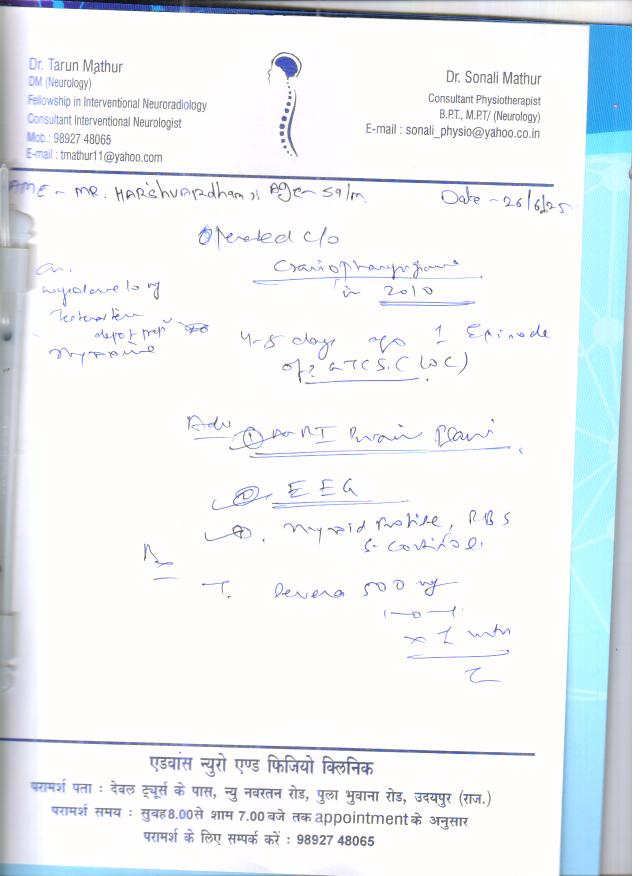 Dr. Tarun Mathur
DM (Neurology)
Fellowship in Interventional Neuroradiology
Consultant Interventional Neurologist
Mob.: 98927 48065
E-mail : tmathur11@yahoo.com
Dr. Sonali Mathur
Consultant Physiotherapist
B.P.T., M.P.T/ (Neurology)
E-mail : sonali_physio@yahoo.co.in
AME - MR. HARShVARDhan Age - 59/m. Date - 26/6/25
Operated c/o
Craniopharyngioma
in 2010
10 mg
depot
4-5 days ago 1 Episode
of ? GTCS. (LOC)
Adv ① MRI Brain Plain
②. EEG
Thyroid Profile, RBS
S. Cortisol.
Rx
T. Levera 500 mg
1-0-1
x 1 mth
एडवांस न्युरो एण्ड फिजियो क्लिनिक
परामर्श पता : देवल ट्यूर्स के पास, न्यु नवरतन रोड, पुला भुवाना रोड, उदयपुर (राज.)
परामर्श समय : सुबह 8.00 से शाम 7.00 बजे तक appointment के अनुसार
परामर्श के लिए सम्पर्क करें : 98927 48065